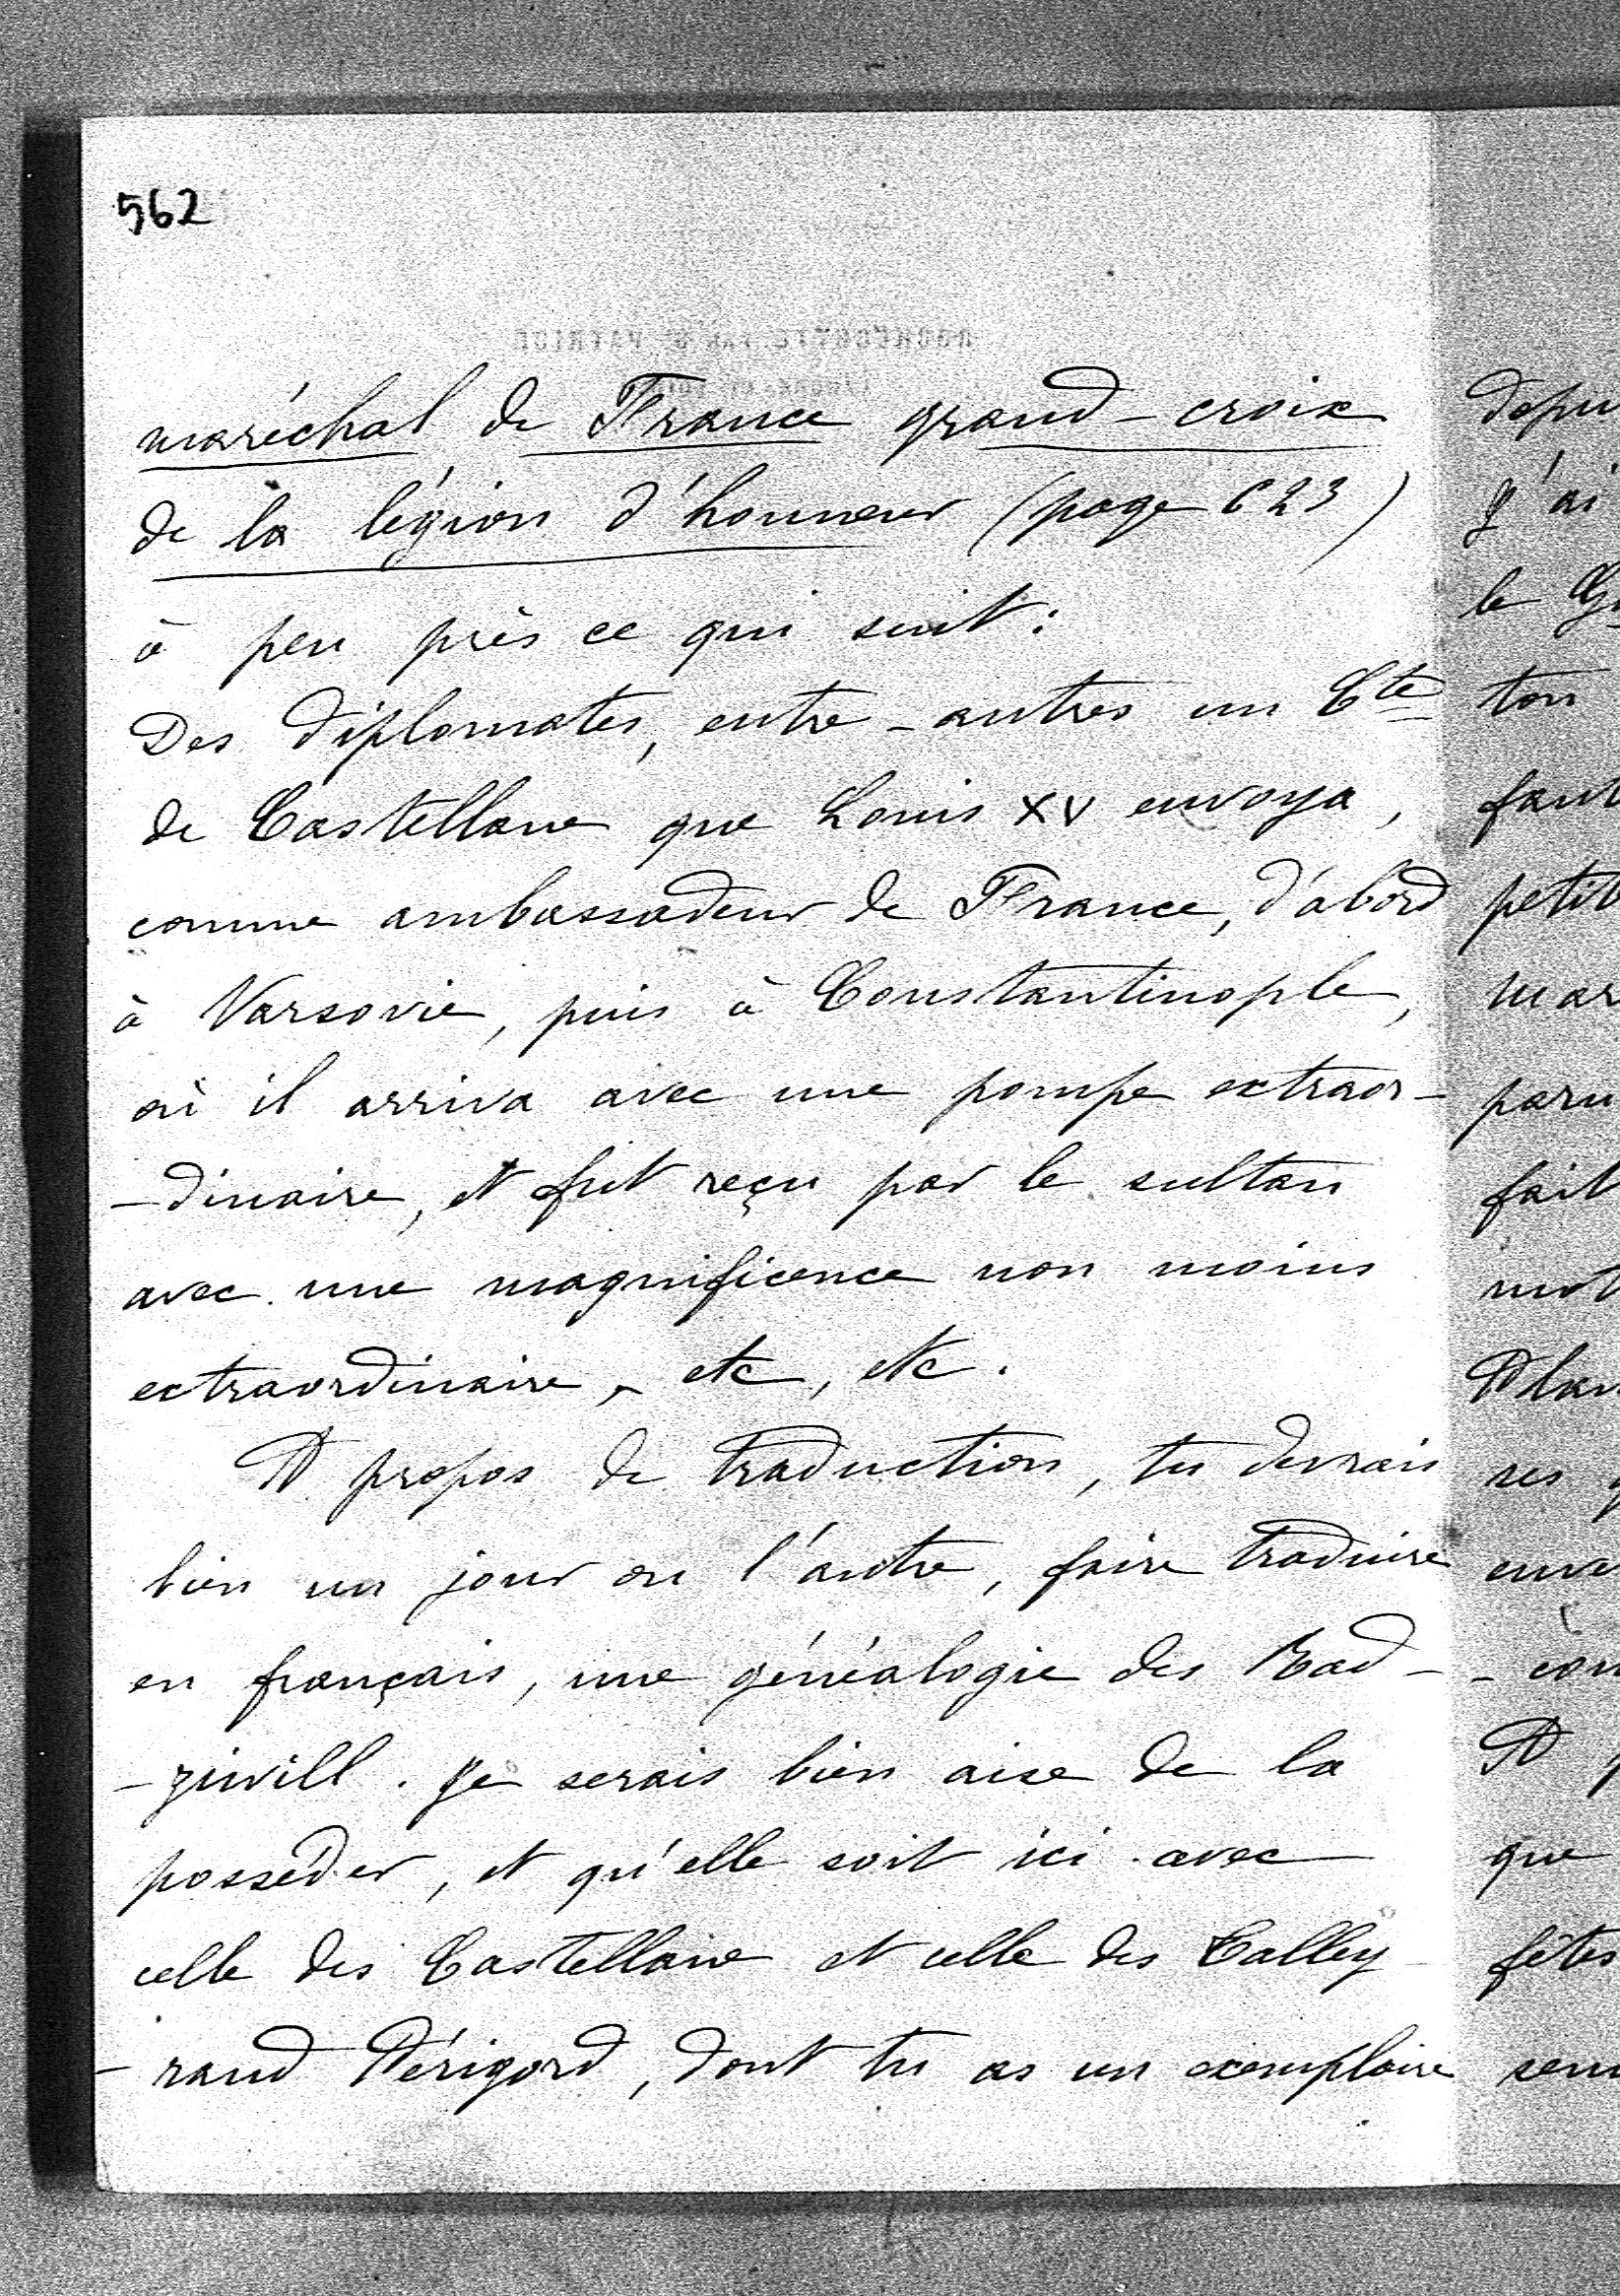 562
maréchal de France grand-croix
de la légion d'honneur (page 623)
à peu près ce qui suit :
Des diplomates, entre-autres un Cte
de Castellane que Louis XV envoya,
comme ambassadeur de France, d'abord
à Varsovie, puis à Constantinople,
où il arriva avec une pompe extraor-
-dinaire, et fut reçu par le sultan
avec une magnificence non moins
extraordinaire, etc, etc.
A propos de traduction, tu devrais
bien un jour ou l'autre, faire traduire
en français, une généalogie des Rad-
-ziwill. Je serais bien aise de la
posséder, et qu'elle soit ici avec
celle des Castellane et celle des Talley
-rand Périgord, dont tu as un exemplaire
depu
J'ai
le G
ton
faut
petit
mar
paru
fait
mot
ses
enve
- con
A
que
fêtes